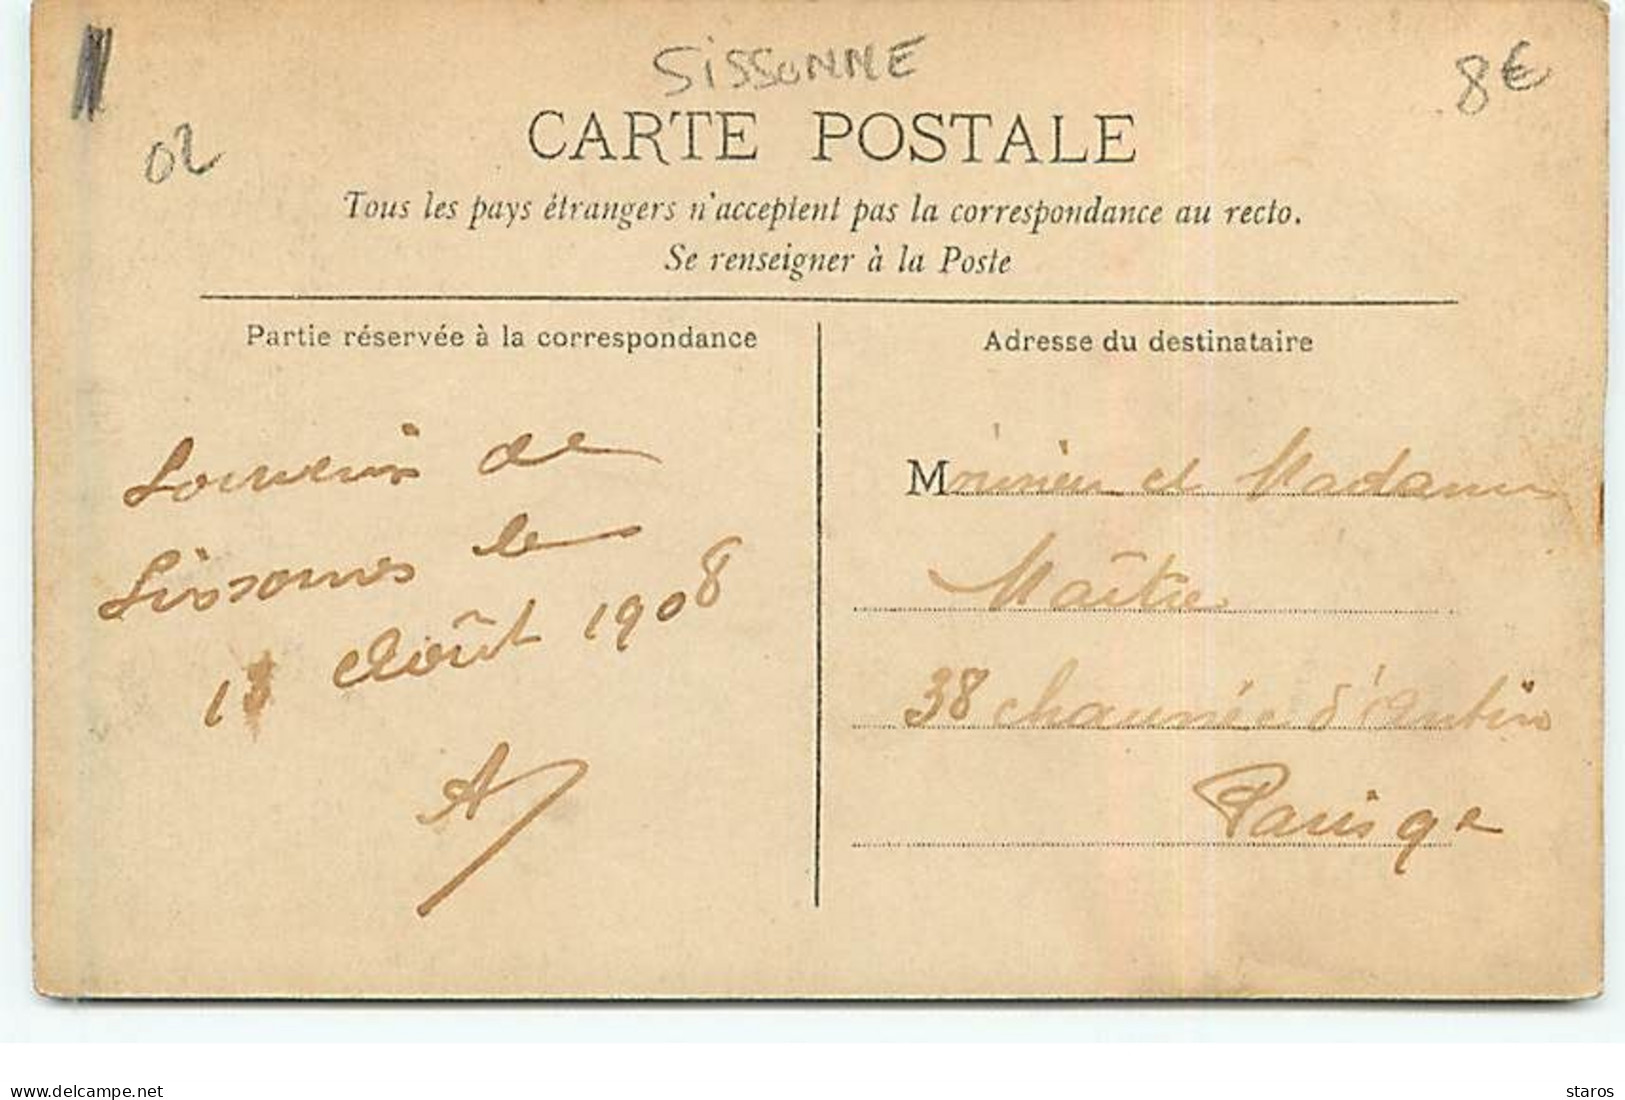 SISSONNE
8€
02
CARTE POSTALE
Tous les pays étrangers n'acceptent pas la correspondance au recto.
Se renseigner à la Poste
Partie réservée à la correspondance
Adresse du destinataire
Souvenir de
Sissonnes le
Août 1908
A
Monsieur et Madame
Maître
38 chaussée d'Antin
Paris 9e
www.delcampe.net
staros